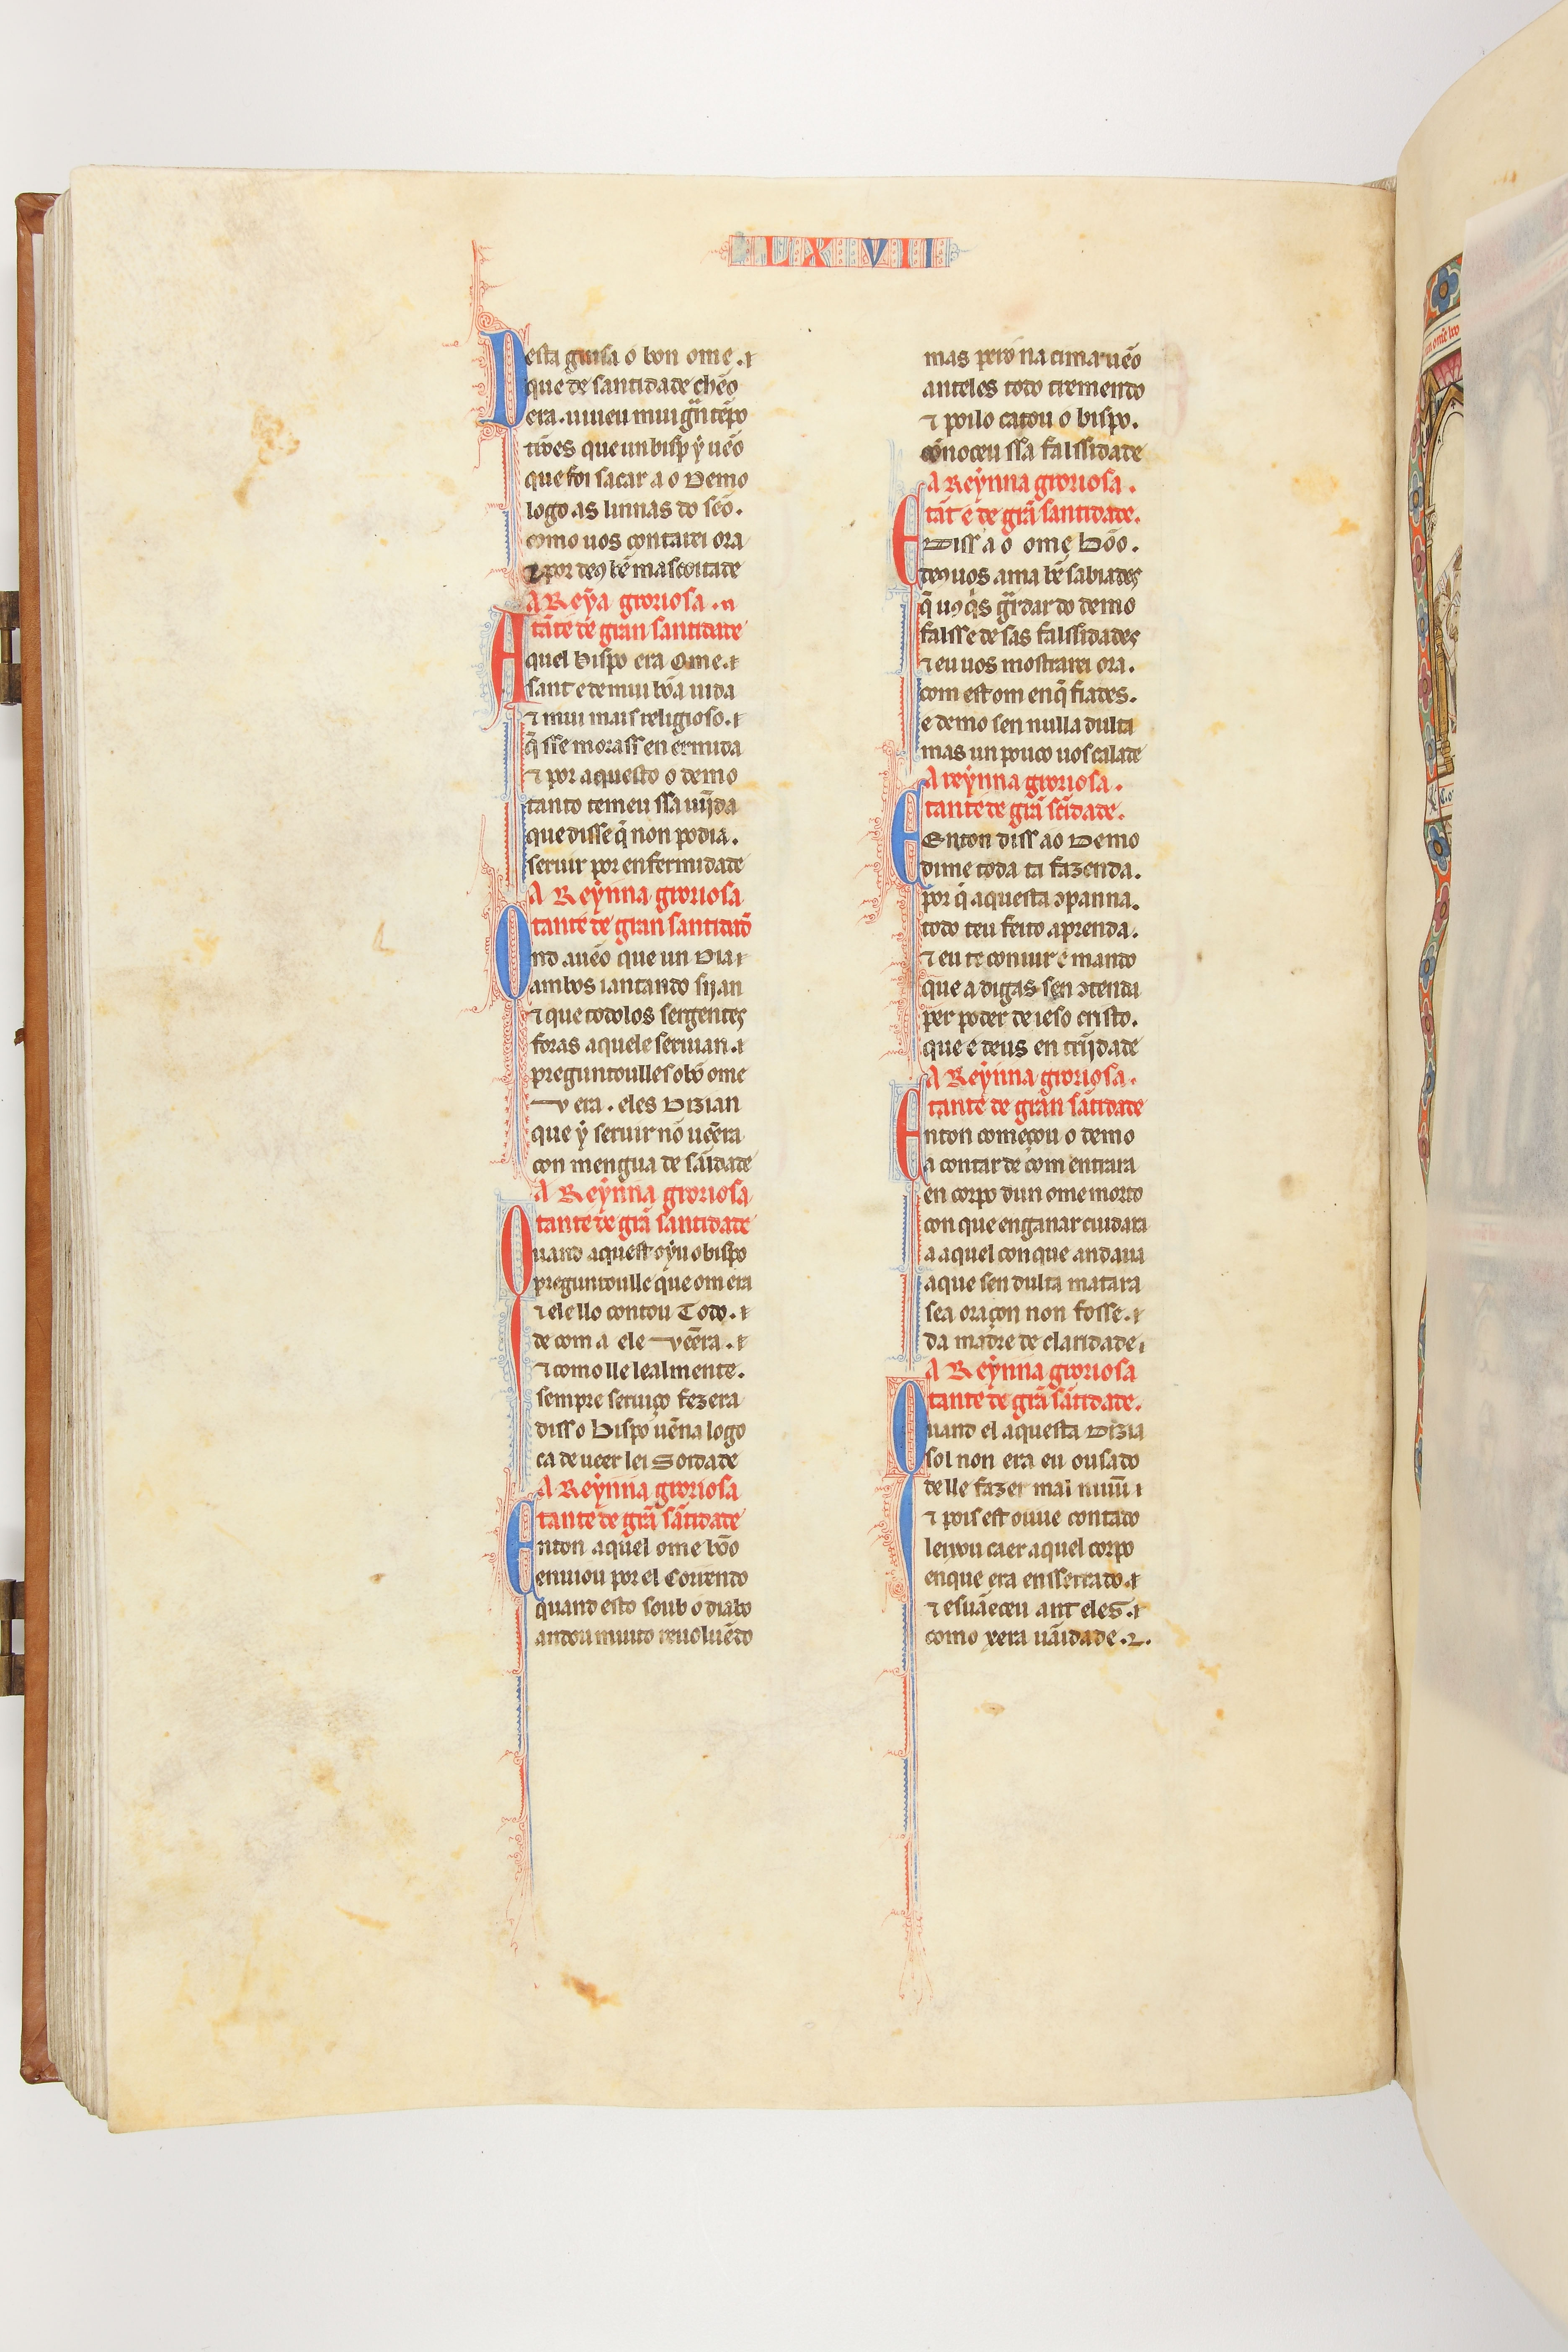 LXVII
Desta guisa o bon ome.⁊
que de santidade chẽo
era. uiueu mui gñ tẽpo
trões que un bisp ẏ uẽo
que foi sacar a o Demo
logo as linnas do sẽo.
como uos contarei ora
⁊ por deus bẽ mascoitade
A Reẏa groriosa. ⁊
tãte de gran santidade
Aquel bispo era ome.⁊
sant e de mui bõa uida
⁊ mui mais religioso.⁊
q̃ sse morass en ermida
⁊ por aquesto o demo
tanto temeu ssa uijda
que disse q̃ non podia.
seruir por enfermidade
A Reẏnna groriosa
tante de gran santidad̃
Ond auẽo que un Dia⁊
ambos iantando sijan
⁊ que todolos sergentes
foras aquele seruian.⁊
preguntoulles o bõ ome
v era. eles Dizian
que ẏ seruir nõ uẽera
con mengua de sãidade
A Reẏnna groriosa
tante de grã santidade
Quand aquest oẏu o bispo
preguntoulle que om era
⁊ ele llo contou Todo.⁊
de com a ele vẽera.⁊
⁊ como lle lealmente.
sempre seruiço fezera
diss o bispo uẽna logo
ca de ueer lei Soidade
A Reẏnna groriosa
tante de grã sãtidade
Enton aquel ome bõo
enuiou por el Correndo
quand esto soub o diabo
andou muito reuoluẽdo
mas pero na cima uẽo
anteles todo tremendo
⁊ poilo catou o bispo.
cõnoceu ssa falssidade
A Reẏnna groriosa.
tãt e de grã santidade.
E Diss a o ome bõo.
deus uos ama bẽ sabiades
q̃ uos q̃s g̃rdar do demo
falsse de sas falssidades
⁊ eu uos mostrarei ora.
com est om en q̃ fiades.
e demo sen nulla dulta
mas un pouco uos calade
A reẏnna groriosa.
tante de grã sc̃idade.
Enton diss ao Demo
dime toda ta fazenda.
por q̃ aquesta ↄpanna.
todo teu feito aprenda.
⁊ eu te coniur e mando
que a digas sen ↄtenda
per poder de ieso cristo.
que e deus en trijdade
A Reẏnna groriosa.
tante de gran sãtidade
Enton começou o demo
a contar de com entrara
en corpo dun ome morto
con que enganar cuidara
a aquel con que andaua
a que sen dulta matara
se a oraçon non fosse.⁊
da madre de claridade⁊
A Reẏnna groriosa
tante de grã sãtidade.
Quand el aquesta Dizia
sol non era eu ousado
de lle fazer mal niũu ⁊
⁊ pois est ouue contado
leixou caer aquel corpo
en que era ensserrado.⁊
⁊ esuãeceu ant eles.⁊
como xera uãidade.⁊.